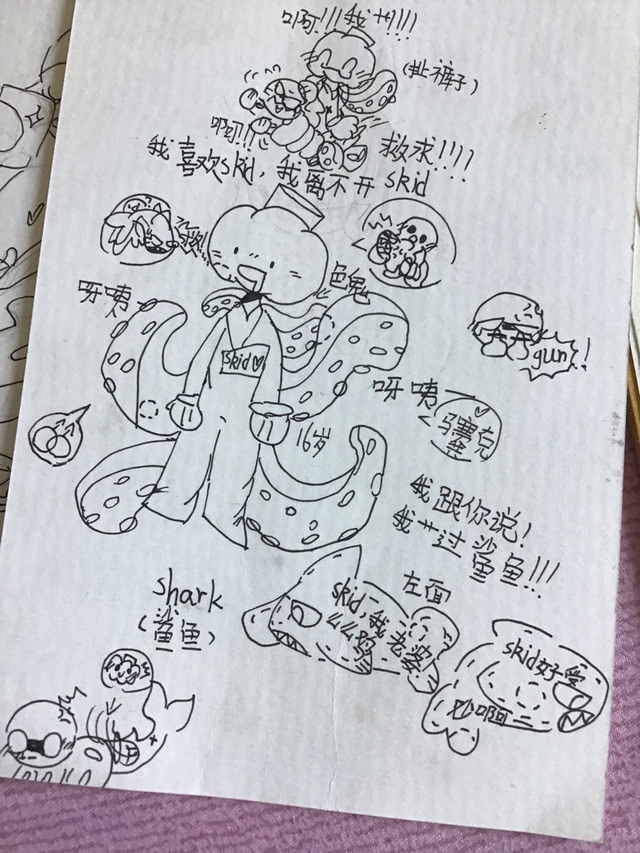 啊!!!我艹!!!
(扯裤子)
救求!!!!
我喜欢skid,我离不开skid
色鬼
呀咦
skid♡
gun!
呀咦
马赛克
16岁
我跟你说!
我艹过鲨鱼!!!
shark
(鲨鱼)
左面
skid,我
老婆
skid好受
啊